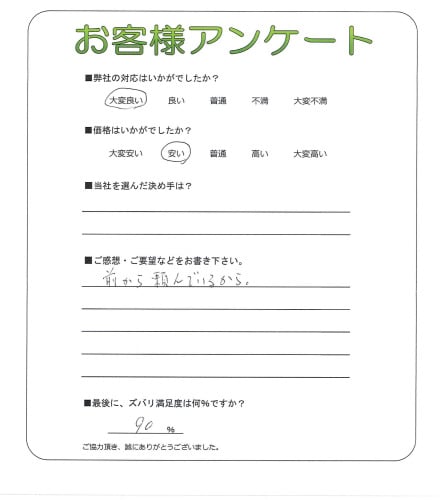 お客様アンケート
■弊社の対応はいかがでしたか？
大変良い 良い 普通 不満 大変不満
■価格はいかがでしたか？
大変安い 安い 普通 高い 大変高い
■当社を選んだ決め手は？
■ご感想・ご要望などをお書き下さい。
前から頼んでいるから。
■最後に、ズバリ満足度は何%ですか？
90 %
ご協力頂き、誠にありがとうございました。